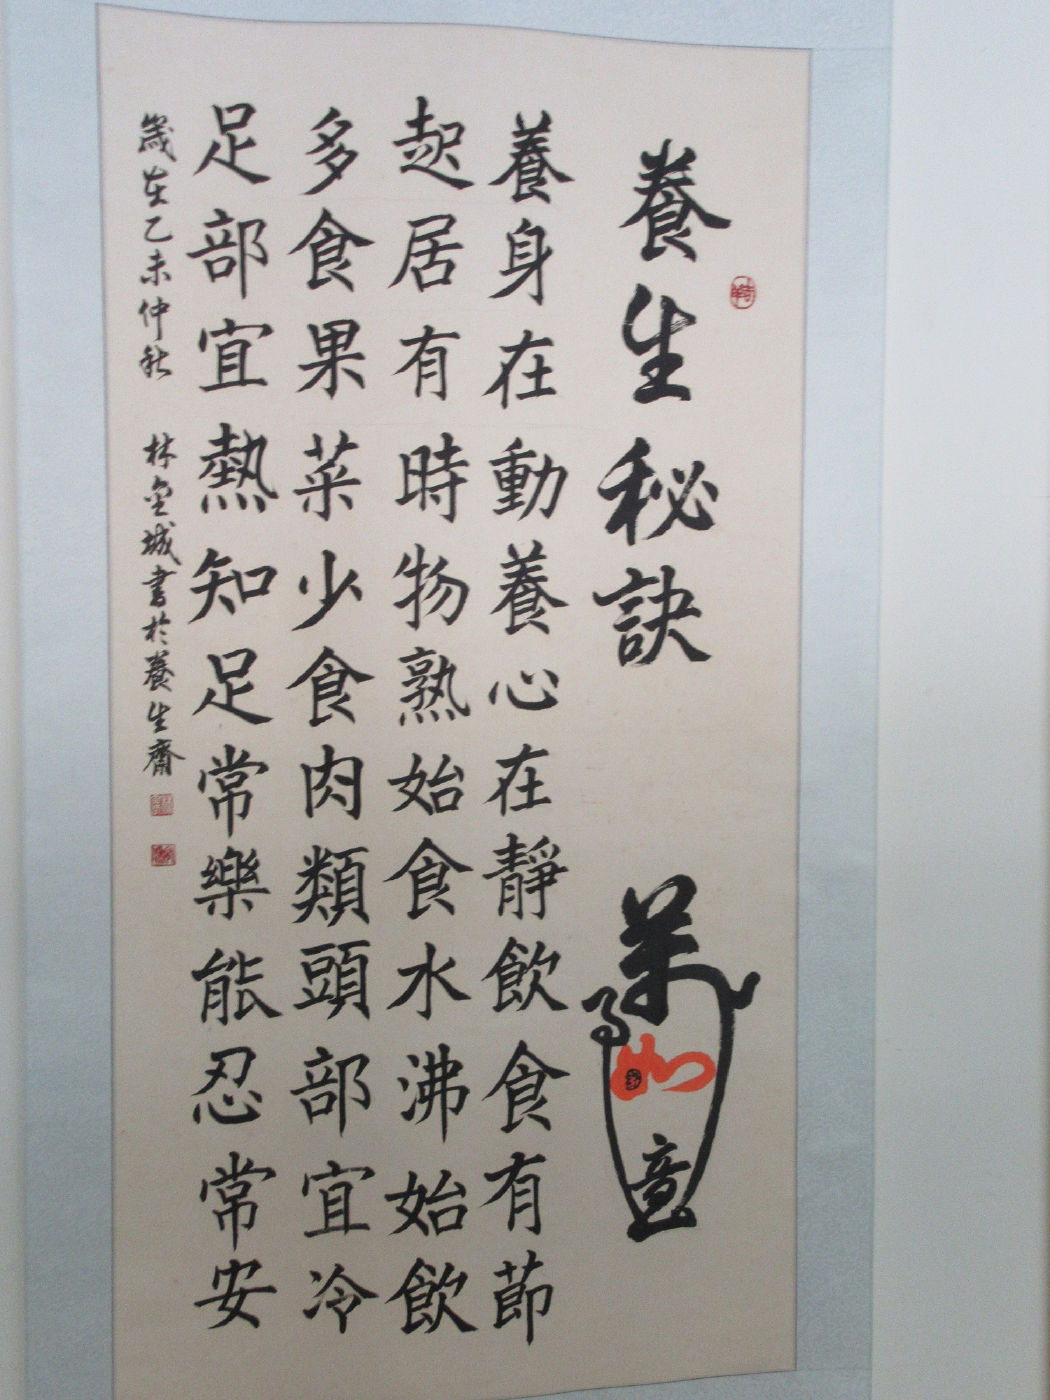 養生秘訣
萬事如意
養身在動養心在靜飲食有節
起居有時物熟始食水沸始飲
多食果菜少食肉類頭部宜冷
足部宜熱知足常樂能忍常安
歲在乙未仲秋 林金城書於養生齋